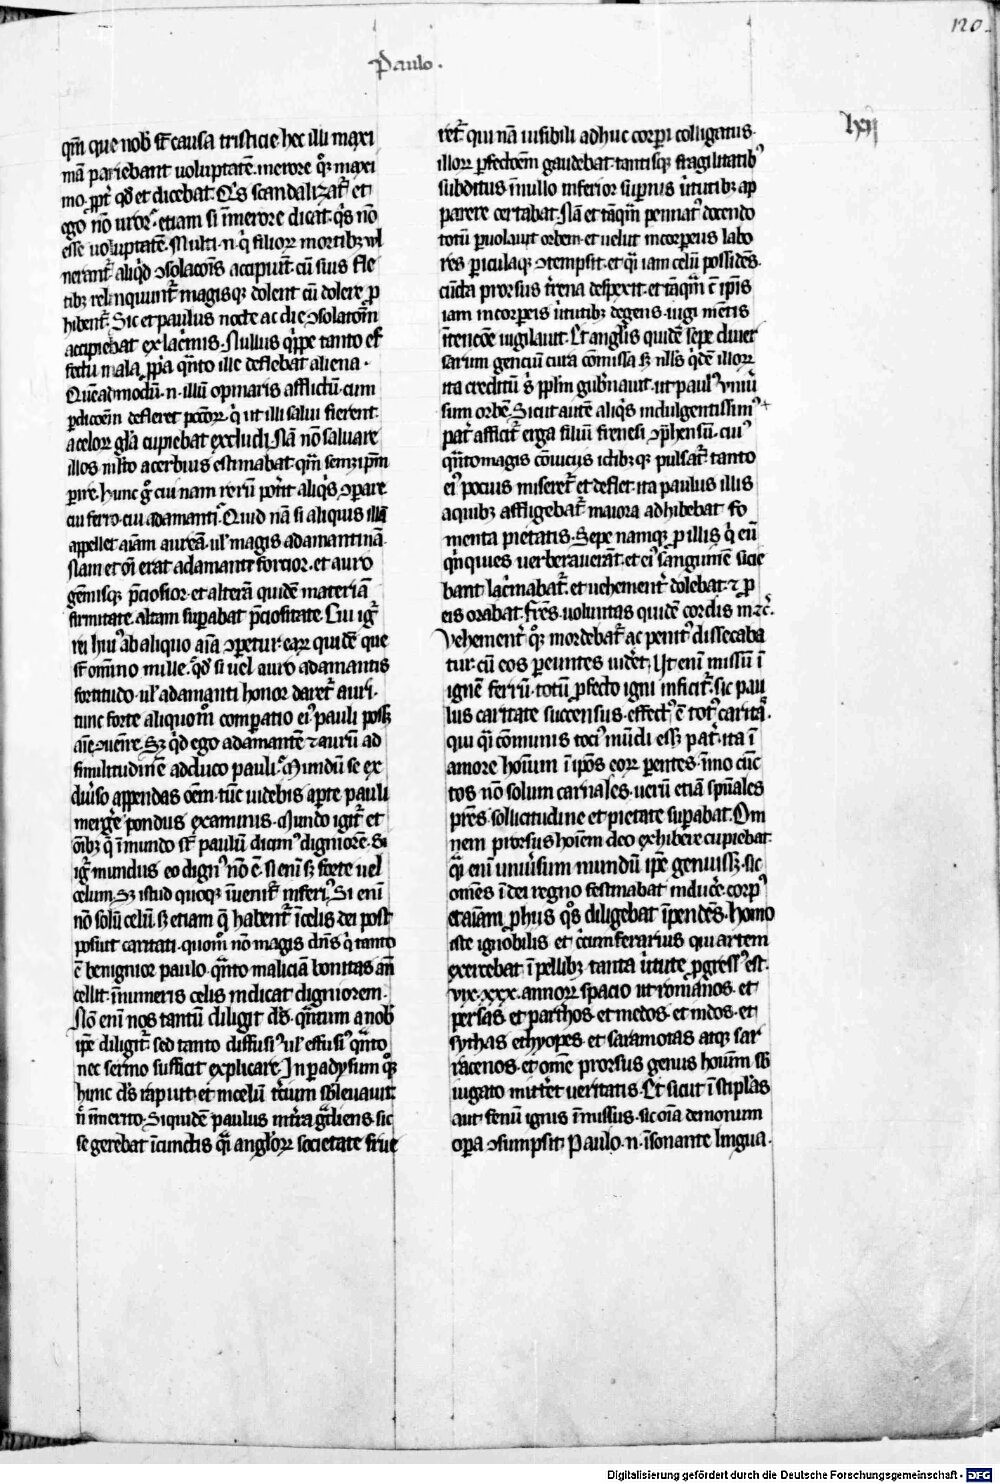 120.
Paulo.
qm̄ que nob̄ st̄ causa tristicie hec illi maxi
mā pariebant uoluptatē. merore q̊ʒ maxi
mo. ꝓpt̄ qđ et dicebat. Q's scandalizat̄ et
ego nō uror. etiam si ī merore dicat q's nō
esse uoluptatē. Multi .n. q̇ filioꝝ mortibꝫ ul̄
nerant̄ aliq̇d ꝯsolacōis accipiūt. cū suis fle
tibꝫ relinquunt̄ magisqꝫ dolent cū dolere ꝓ
hibent̄. Sic et paulus nocte ac die ꝯsolatōm̄
accipiebat ex lac̄mis. Nullus q̇ppe tanto ef
fectu mala ꝓp̄a q̄nto ille deflebat aliena.
Quēadmodū .n. illū opinaris afflictū cum
ꝑdicōem̄ defleret pctōꝝ. q̇ ut illi salui fierent.
a celoꝝ gl̄a cupiebat excludi. Nā nō saluare
illos m̄lto acerbius estimabat. qm̄ semꝫ ip̄m
ꝑire. hunc g̊ cui nam rerū pot̄it aliq's ꝯpare
cui ferro. cui adamanti. Quid nā si aliquis illā
appellet aīam aureā. ul' magis adamantinā.
Nam et oī erat adamante forcior. et auro
gēmisqꝫ p̄ciosior. et alterā quidē materiā
firmitate. altam suꝑabat p̄ciositate. Cui igr̄
rei hui' ab aliquo aīa ꝯꝑetur. eaꝝ quidē que
st̄ omīno mille. qđ si uel auro adamantis
fortitudo. ul' adamanti honor daret̄ auri.
tunc forte aliquom̊ comꝑatio ei' pauli possꝫ
aīe ꝯuenire. Sꝫ q̇d ego adamantē ⁊ aurū ad
similitudinē adduco pauli. Mundū se ex
diu̇so appendas oēm. tūc uidebis aꝑte pauli
mergͤre pondus examinis. Mundo igit̄ et
oībꝫ q̄ ī mundo st̄ paulū dicam' digniorē. Si
igr̄ mundus eo dign' nō ē. si enī sꝫ forte uel
celum. Sꝫ istud quoqꝫ īuenit̄ inferi'. Si enī
nō solū celū sꝫ etiam q̄ habent̄ ī celis dei post
posuit caritati. quom̊ nō magis dn̄s q̇ tanto
ē benignior paulo. q̄nto maliciā bonitas an̄
cellit. īnumeris celis indicat digniorem.
Nō enī nos tantū diligit d̄s. q̄ntum a nob̄
ipē diligit̄. sed tanto diffusi' ul' effusi' q̄nto
nec sermo sufficit explicare. In ꝑadysum q̊ʒ
hunc d̄s rapuit. et in celū t̄cium sb̄leuauit.
n̄ īmerito. Siquidē paulus īt̄ra gͣdiens. sic
se gerebat ī cunctis q̄i angl̄oꝝ societate frue
ret̄ qui nā iu̇sibili adhuc corꝑi colligatus.
illoꝝ ꝑfectōem̄ gaudebat. tantisqꝫ fragilitatibꝫ
subditus ī nullo inferior suꝑnis u̇tutibꝫ ap
parere certabat. Nā et tāq̄m pennat' docendo
totū ꝑuolauit orbem. et uelut incorpeus labo
res ꝑiculaqꝫ ꝯtempsit. et q̄i iam celū possidēs.
cūcta prorsus t̄rena despexit. et tāq̄m cͣ ip̄is
iam incorꝑeis u̇tutibꝫ degens. iugi mētis
ītencōe uigilauit. Et angl̄is quidē sepe diuer
sarum genciū cura cōmissa sꝫ nll̄s q̇dē illoꝝ
ita creditū s̄ pplm̄ gub̄nauit. ut paul' vniu̇
sum orbē. Sicut autē aliq's indulgentissim'
pat̄ afficit̄ erga filiū frenesi ꝯp̄hensū. cui'
q̄nto magis cōuiciis ictibꝫqꝫ pulsat̄ tanto
ei' pocius miseret̄ et deflet. ita paulus illis
a quibꝫ affligebat̄ maiora adhibebat fo
menta pietatis. Sepe namqꝫ ꝓ illis q̇ eū
q̇nquies uerberauerāt. et ei' sanguinē sicie
bant lac̄mabat̄. et uehement̄ dolebat. ⁊ ꝓ
eis orabat. fr̄es. uoluntas quidē cordis m. ⁊c̄.
Vehement̄ q̊ʒ mordebat̄ ac penit' dissecaba
tur. cū eos ꝑeuntes uidet̄. Ut enī missū ī
ignē ferrū. totū ꝓfecto igni inficit̄. sic pau
lus caritate succensus. effect' ē tot' caritͣ.
qui q̄i cōmunis toci' mūdi essꝫ pat̄. ita ī
amore hoīum ī ip̄os eoꝝ ꝑentes. īmo cūc
tos nō solum carnales. uerū etiā sp̄uales
pr̄es. sollicitudine et pietate suꝑabat. Om
nem prorsus hoīem deo exhibere cupiebat.
q̄i enī uniu̇sum mundū ip̄e genuissꝫ. sic
omēs ī dei regno festinabat induc̄e. corꝑ'
et aīam ꝓ hiis q's diligebat īpendēs. homo
iste ignobilis et circumferarius qui artem
exercebat ī pellibꝫ tanta u̇tute ꝓgress' est.
vix .xxx. annoꝝ spacio ut romanos. et
persas. et parthos. et medos. et indos. et
sythas. ethyopes. et saramotas atqꝫ sar
racenos. et omē prorsus genus hoīum sb̄
iugato mitt̄et ueritatis. Et sicut ī stiplas
aut fenū ignis īmissus. sic oīa demonum
oꝑa ꝯsumpsit. Paulo .n. īsonante lingua.
Digitalisierung gefördert durch die Deutsche Forschungsgemeinschaft - DFG